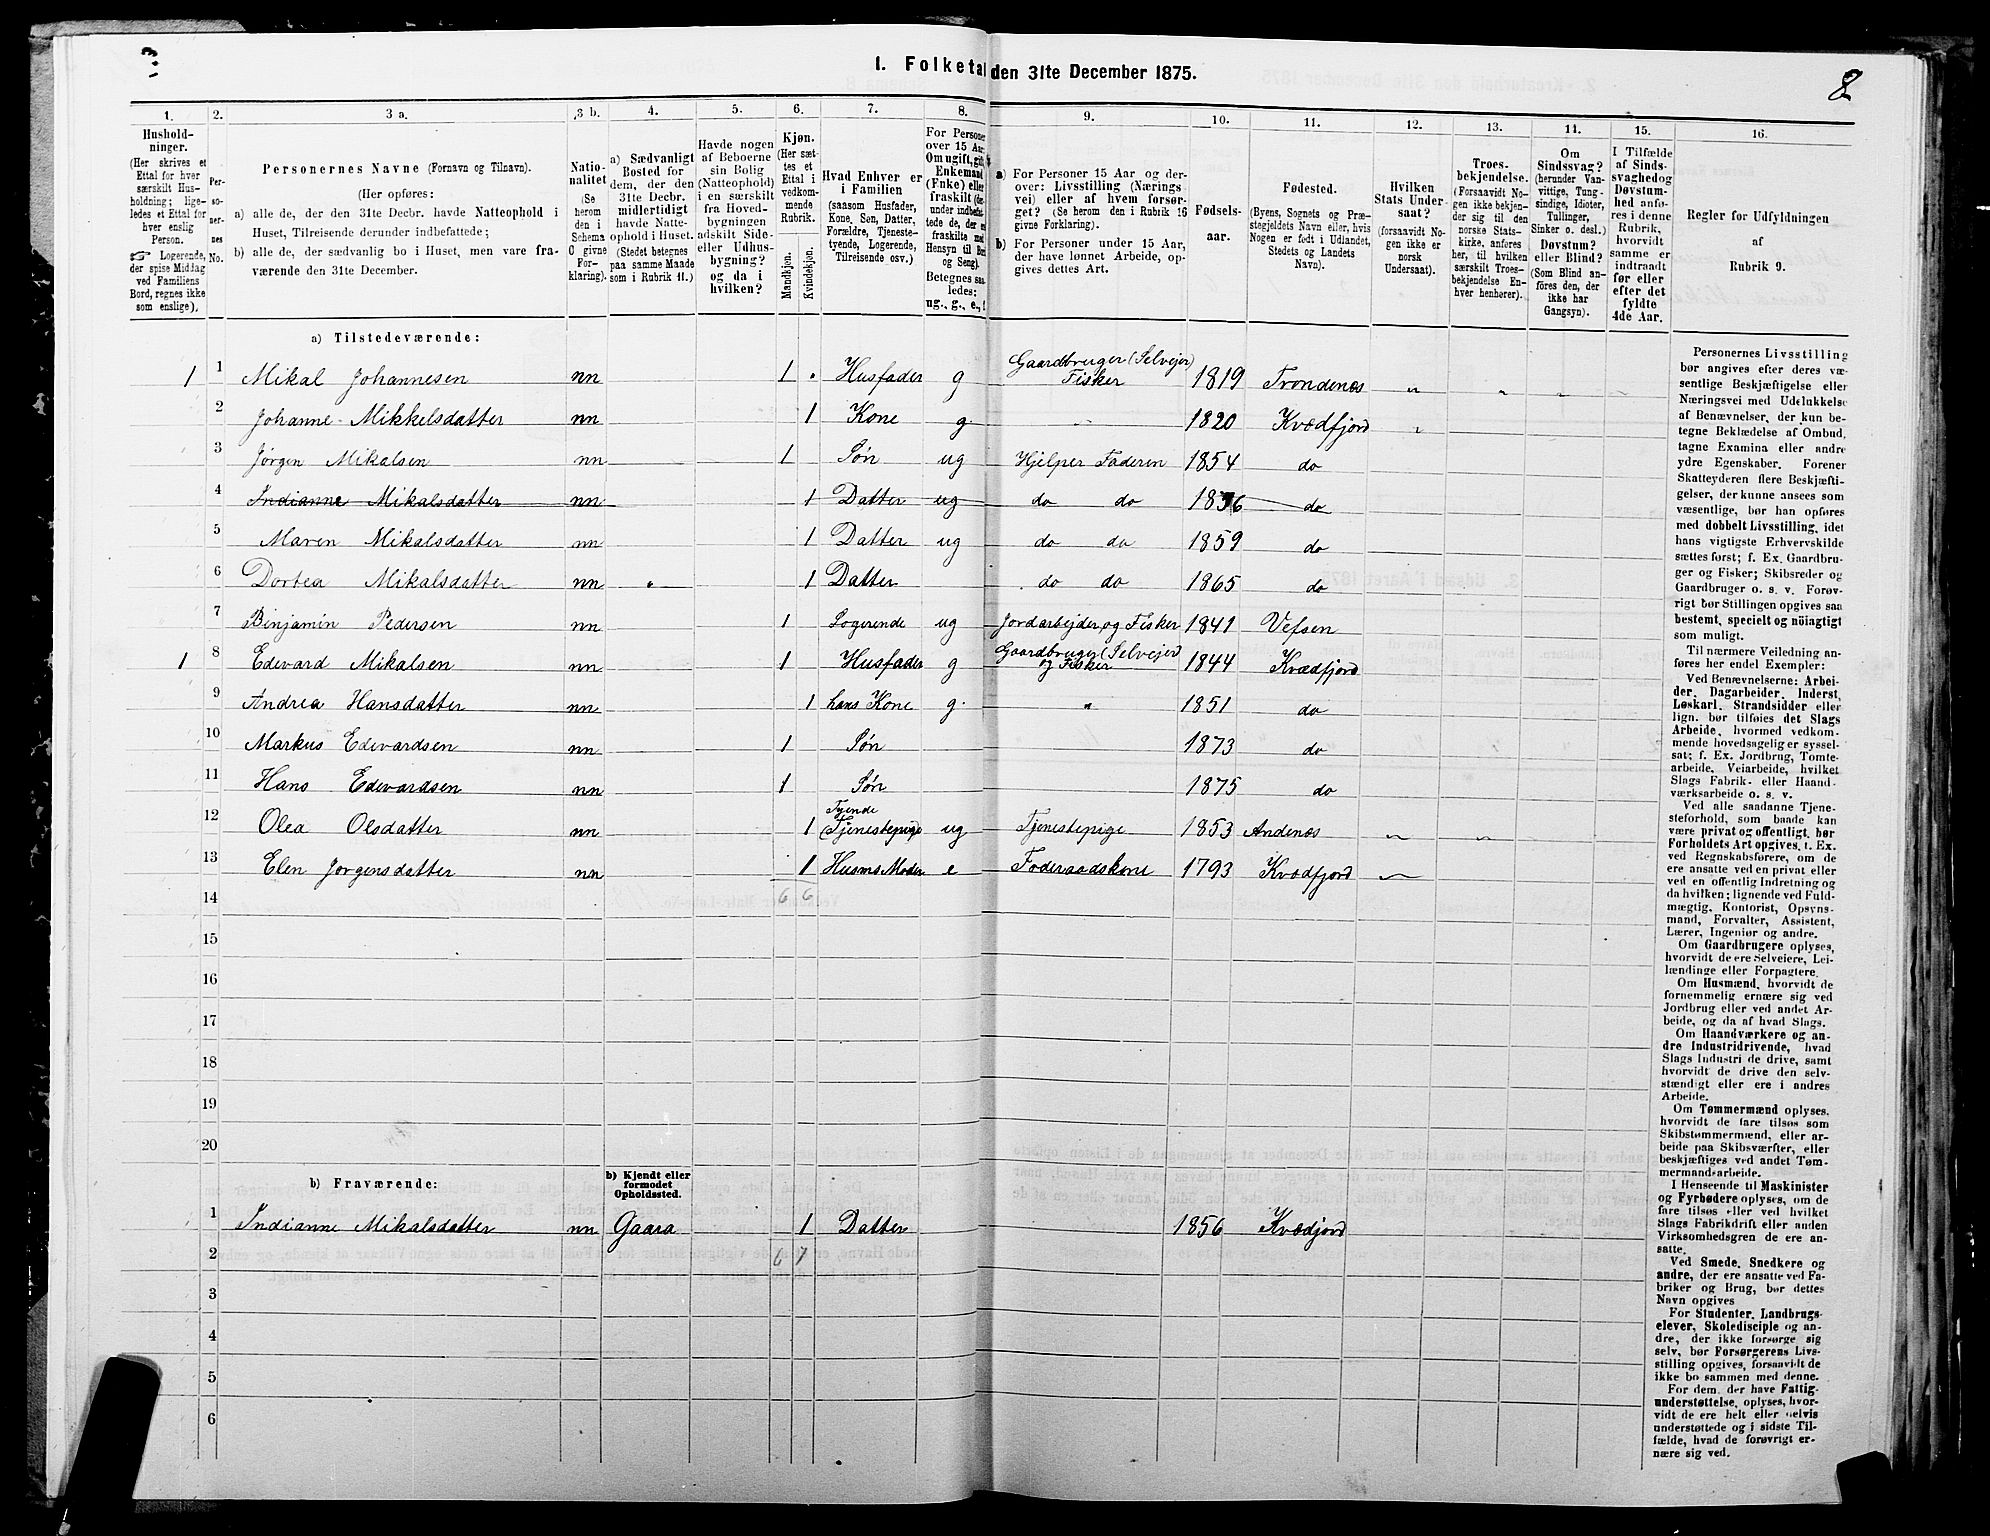 I. Folketal den 31te December 1875.
8
1. 2. 3 a. 3 b. 4. 5. 6. 7. 8. 9. 10. 11. 12. 13. 14. 15. 16.
Hushold-
ninger.
(Her skrives et
Ettal for hver
særskilt Hus-
holdning; lige-
ledes et Ettal for
hver enslig
Person.
☞ Logerende,
der spise Middag
ved Familiens
Bord, regnes ikke
som enslige).
Per-
so-
ner-
nes
No.
Personernes Navne (Fornavn og Tilnavn).
(Her opføres:
a) alle de, der den 31te Decbr. havde Natteophold i
Huset, Tilreisende derunder indbefattede;
b) alle de, der sædvanlig bo i Huset, men vare fra-
værende den 31te December.
Natio-
nalitet
(Se
herom
den i
Schema
O givne
For-
klaring).
a) Sædvanligt
Bosted for
dem, der den
31te Decbr.
midlertidigt
havde Natte-
ophold i Huset.
(Stedet betegnes
paa samme Maade
som i Rubrik 11.)
Havde nogen
af Beboerne
sin Bolig
(Natteophold)
i en særskilt
fra Hoved-
bygningen
adskilt Side-
eller Udhus-
bygning?
og da i
hvilken?
Kjøn.
(Her sæt-
tes et
Ettal i
vedkom-
mende
Rubrik.
Mandkjøn.
Kvindekjøn.
Hvad Enhver er
i Familien
(saasom Husfader,
Kone, Søn, Datter,
Forældre, Tjeneste-
tyende, Logerende,
Tilreisende osv.)
For Personer
over 15 Aar:
Om ugift, gift,
Enkemand
(Enke) eller
fraskilt (der-
under indbefat-
tede de, der ere
fraskilte med
Hensyn til Bord
og Seng).
Betegnes saa-
ledes:
ug., g., e., f.
a) For Personer 15 Aar og der-
over: Livsstilling (Nærings-
vei) eller af hvem forsør-
get? (Se herom den i Rubrik 16
givne Forklaring).
b) For Personer under 15 Aar,
der have lønnet Arbeide, op-
gives dettes Art.
Fødsels-
aar.
Fødested.
(Byens, Sognets og Præ-
stegjeldets Navn eller, hvis
Nogen er født i Udlandet,
Stedets og Landets
Navn).
Hvilken
Stats Under-
saat?
(forsaavidt No-
gen ikke er
norsk
Undersaat).
Troes-
bekjendelse.
(Forsaavidt No-
gen ikke bekjen-
der sig til den
norske Stats-
kirke, anføres
her, til hvilken
særskilt Troes-
bekjendelse En-
hver henhører).
Om
Sindssvag?
(herunder Van-
vittige, Tung-
sindige, Idioter,
Tullinger,
Sinker o. desl.)
Døvstum?
eller Blind?
(Som Blind an-
føres den, der
ikke har
Gangsyn).
I Tilfælde
af Sinds-
svaghed og
Døvstum-
hed anfø-
res i denne
Rubrik,
hvorvidt
samme er
indtraadt
før eller
efter det
fyldte
4de Aar.
Regler for Udfyldningen
af
Rubrik 9.
a) Tilstedeværende:
1 1 Mikal Johannesen nn 1 Husfader g Gaardbruger (Selvejer) Fisker 1819 Trondenes
2 Johanne Mikkelsdatter nn 1 Kone g. 1820 Kvædfjord
3 Jørgen Mikalsen nn 1 Søn ug Hjelper Faderen 1854 do
4 Indianne Mikalsdatter nn 1 Datter ug do do 1856 do
5 Maren Mikalsdatter nn 1 Datter ug do do 1859 do
6 Dortea Mikalsdatter nn 1 Datter do do 1865 do
7 Binjamin Pedersen nn 1 Logerende ug Jordarbejder og Fisker 1841 Vefsen
1 8 Edevard Mikalsen nn 1 Husfader g Gaardbruger (Selvejer) og Fisker 1844 Kvædfjord
9 Andrea Hansdatter nn 1 hans Kone g. " 1851 do
10 Markus Edevardsen nn 1 Søn 1873 do
11 Hans Edevardsen nn 1 Søn 1875 do
12 Olea Olsdatter nn 1 Tyende (Tjenestepige ug Tjenestepige 1853 Andenæs
13 Elen Jørgensdatter nn 1 Husms Moder e Føderaadskone 1793 Kvædfjord
14 6 6
15
16
17
18
19
20
b) Fraværende:
b) Kjendt eller
formodet
Opholdssted.
1 Indianne Mikalsdatter nn Gaara 1 Datter 1856 Kvædjord
2 6 7
3
4
5
6
Personernes Livsstilling
bør angives efter deres væ-
sentlige Beskjæftigelse eller
Næringsvei med Udelukkelse
af Benævnelser, der kun be-
tegne Beklædelse af Ombud,
tagne Examina eller andre
ydre Egenskaber. Forener
Skatteyderen flere Beskjæfti-
gelser, der kunne ansees som
væsentlige, bør han opføres
med dobbelt Livsstilling, idet
hans vigtigste Erhvervskilde
sættes først; f. Ex. Gaardbru-
ger og Fisker; Skibsreder og
Gaardbruger o. s. v. Forøv-
rigt bør Stillingen opgives saa
bestemt, specielt og nöiagtigt
som muligt.
Til nærmere Veiledning an-
føres her endel Exempler:
Ved Benævnelserne: Arbei-
der, Dagarbeider, Inderst,
Løskarl, Strandsidder eller
lign. bør tilføies det Slags
Arbeide, hvormed vedkom-
mende hovedsagelig er syssel-
sat; f. Ex. Jordbrug, Tomte-
arbeide, Veiarbeide, hvilket
Slags Fabrik- eller Haand-
værksarbeide o. s. v.
Ved alle saadanne Tjene-
steforhold, som baade kan
være privat og offentligt, bør
Forholdets Art opgives, f. Ex.
ved Regnskabsførere, om de
ere ansatte ved en privat eller
ved en offentlig Indretning og
da hvilken; lignende ved Fuld-
mægtig, Kontorist, Opsyns-
mand, Forvalter, Assistent,
Lærer, Ingeniør og andre.
Om Gaardbrugere oplyses,
hvorvidt de ere Selveiere, Lei-
lændinge eller Forpagtere.
Om Husmænd, hvorvidt de
fornemmelig ernære sig ved
Jordbrug eller ved andet Ar-
beide, og da af hvad Slags.
Om Haandværkere og an-
dre Industridrivende, hvad
Slags Industri de drive, samt
hvorvidt de drive den selv-
stændigt eller ere i andres
Arbeide.
Om Tømmermænd oplyses,
hvorvidt de fare tilsøs som
Skibstømmermænd, eller ar-
beide paa Skibsværfter, eller
beskjæftiges ved andet Tøm-
mermandsarbeide.
I Henseende til Maskinister
og Fyrbødere oplyses, om de
fare tilsøs eller ved hvilket
Slags Fabrikdrift eller anden
Virksomhedsgren de ere an-
satte.
Ved Smede, Snedkere og
andre, der ere ansatte ved Fa-
briker og Brug, bør dettes
Navn opgives
For Studenter, Landbrugs-
elever, Skoledisciple og an-
dre, der ikke forsørge sig
selv, bør Forsørgerens Livs-
stilling opgives, forsaavidt de
ikke bo sammen med denne.
For dem, der have Fattig-
understøttelse, oplyses, hvor-
vidt de ere helt eller delvis
understøttede og i sidste Til-
fælde, hvad de forøvrigt er-
nære sig ved.